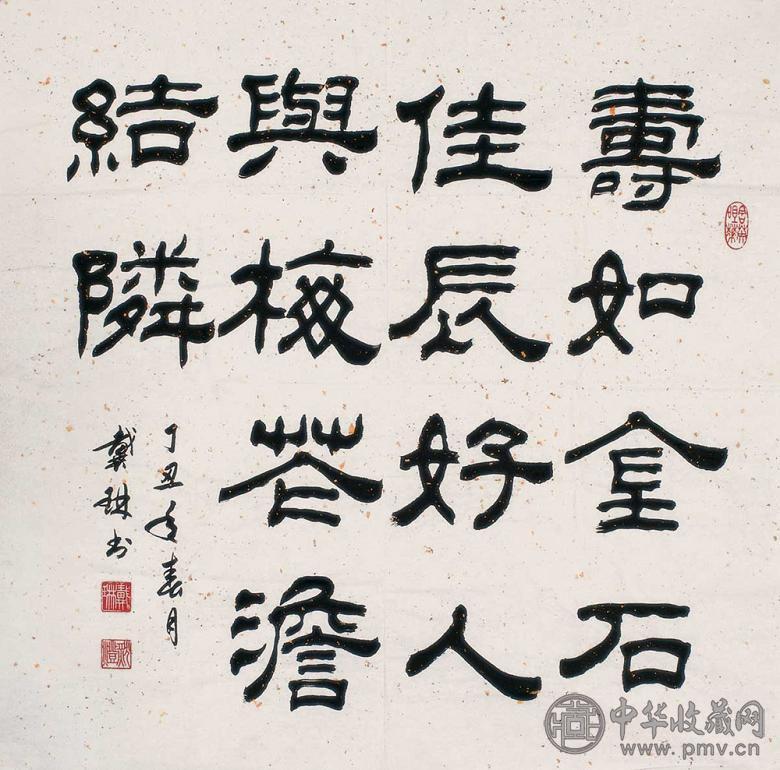 壽如金石
佳辰好人
與梅花澹
結隣
丁丑年春月
戴琳书
中华收藏网
www.pmv.cn